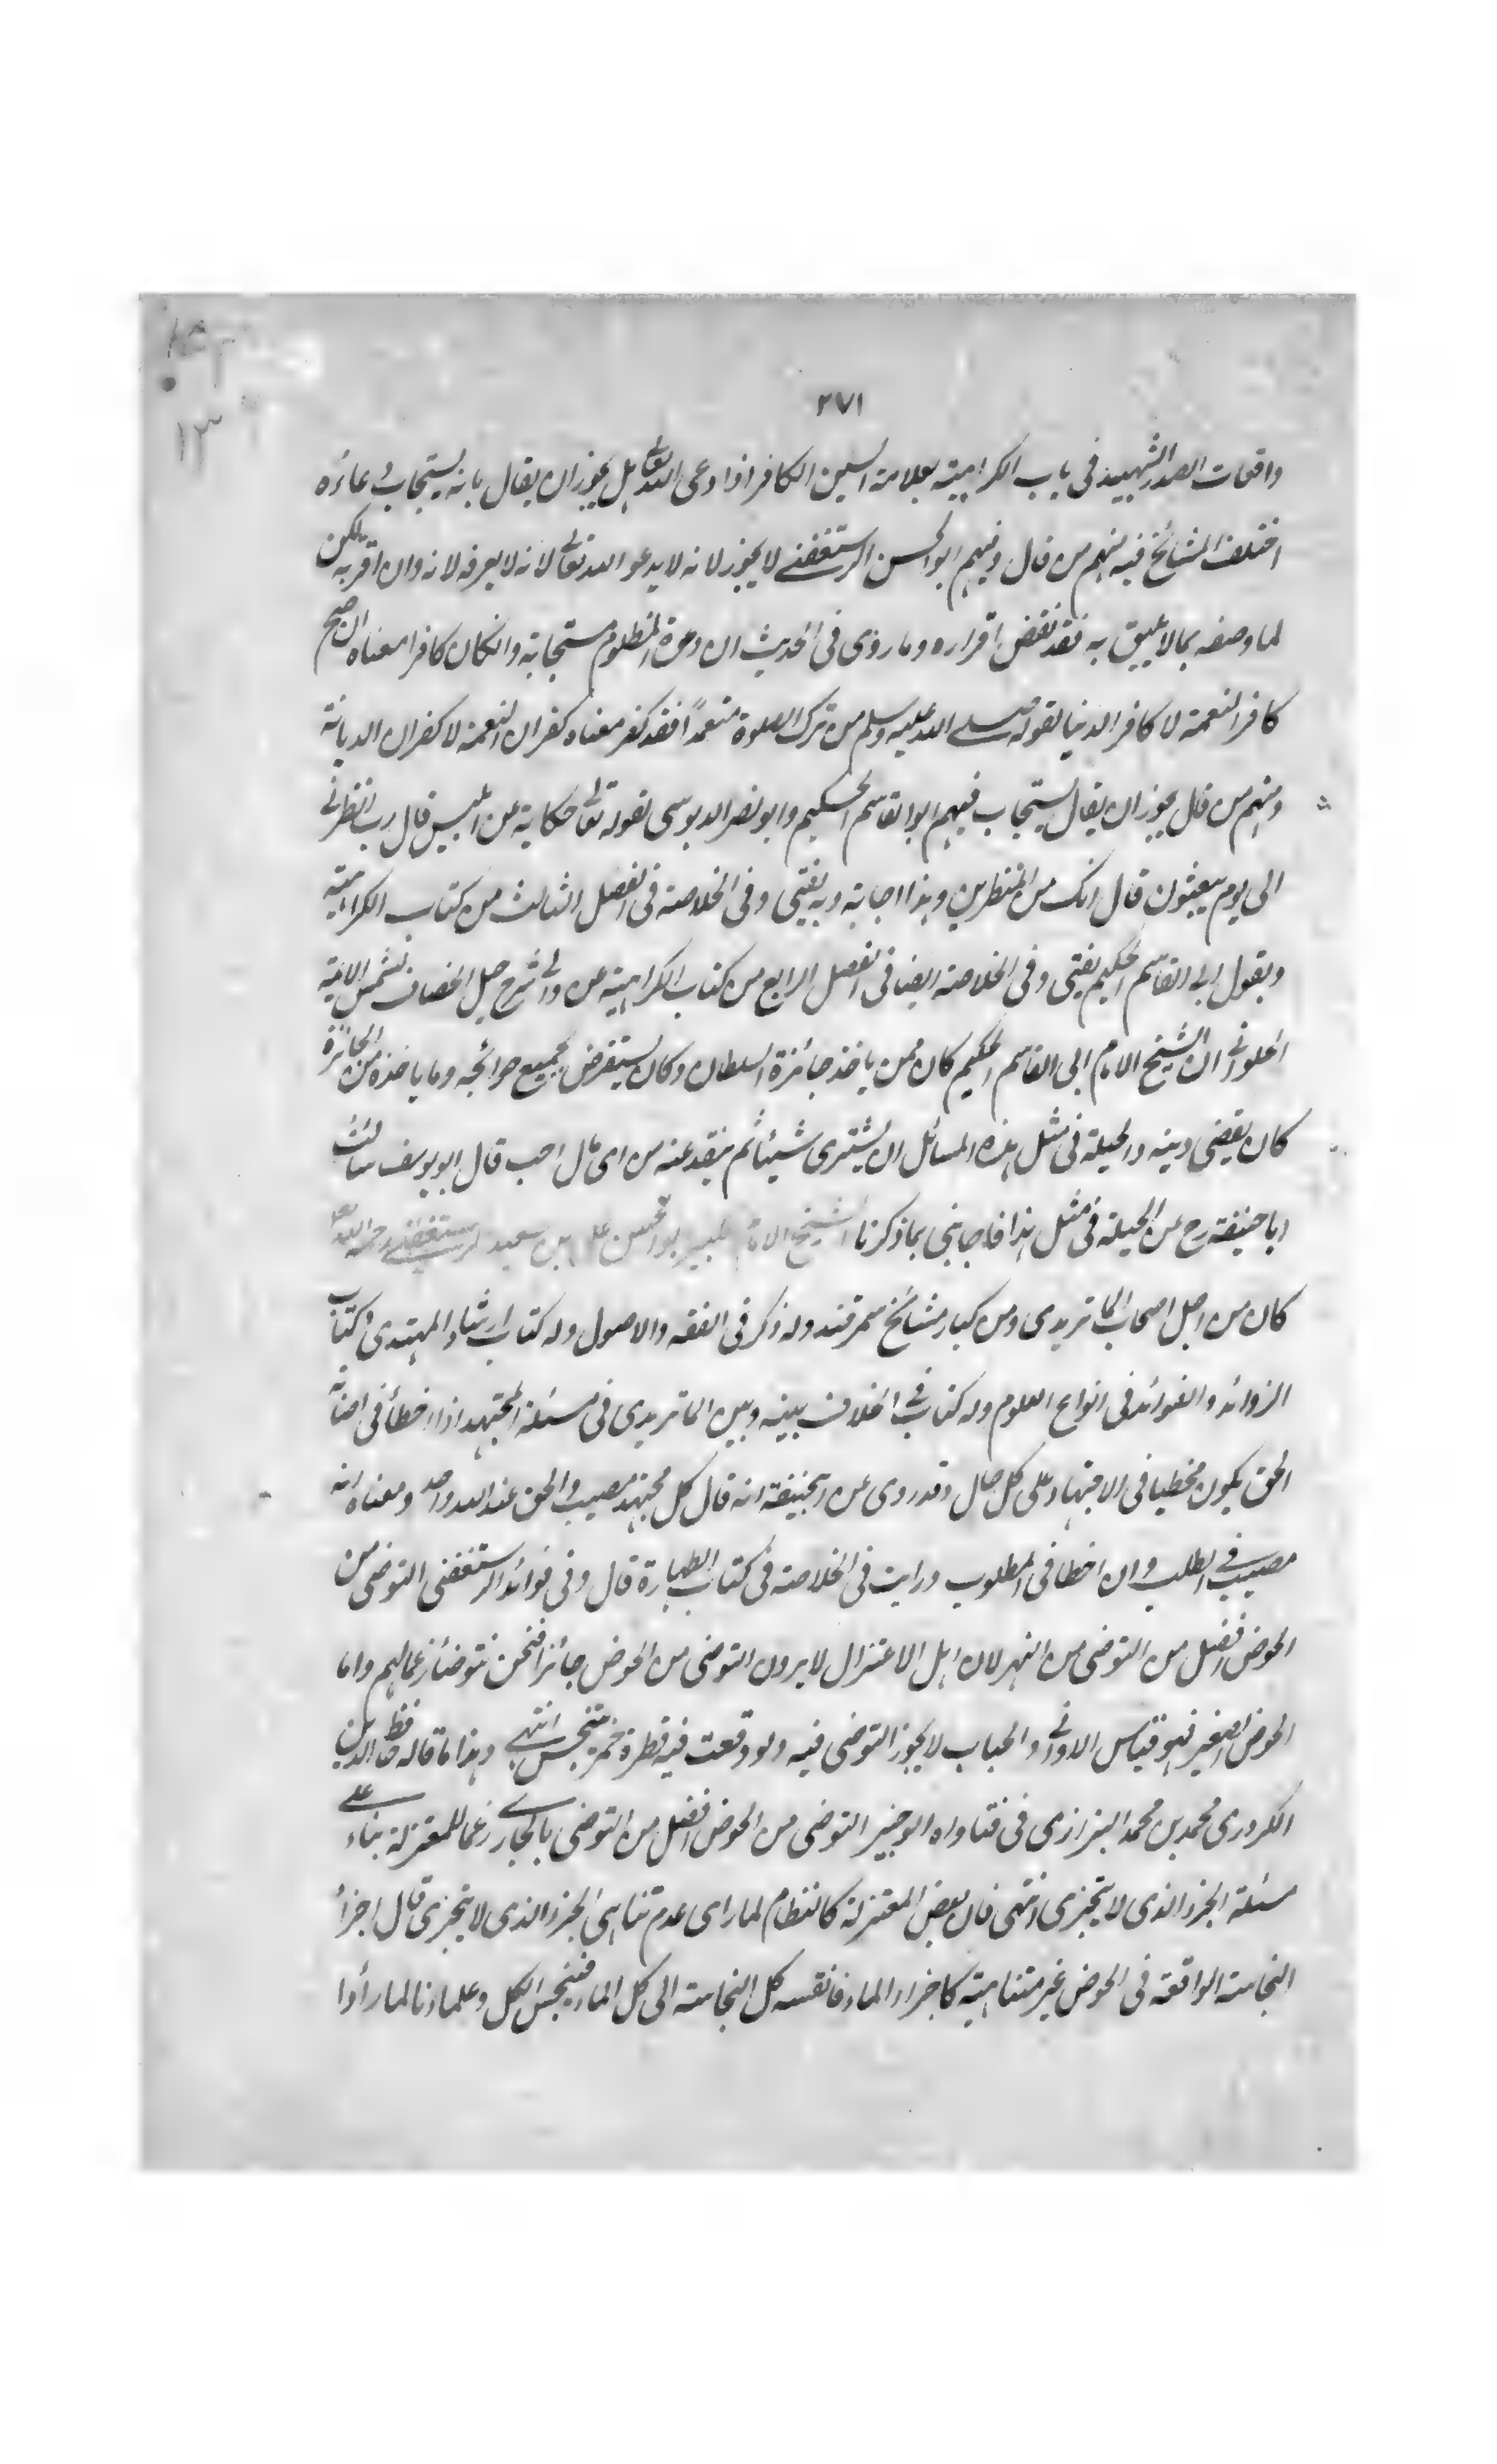 ٢٧١
واقعات الصدر الشهيد فى باب الكراهية بعلامة السين الكافر اذا دعى الله تعالى هل يجوز ان يقال بانه يستجاب دعاؤه
اختلف المشائخ فيه منهم من قال ومنهم ابو الحسن الرستغفنے لا يجوز لانه لا يدعو الله تعالى لانه لا يعرفه لانه وان اقر به لكن
لما وصفه بما لا يليق به فقد نقض اقراره وما روى فى الحديث ان دعوة المظلوم مستجابة وانكان كافرا معناه ان صح
كافر النعمة لا كافر الدنيا لقوله صلے الله عليه وسلم من ترك الصلوة متعمداً فقد كفر معناه كفران النعمة لا كفران الديانة
ومنهم من قال يجوز ان يقال يستجاب فيهم ابو القاسم الحكيم وابو نصر الدبوسى لقوله تعالى حكاية عن ابليس قال رب انظرنے
الى يوم يبعثون قال انك من المنظرين وهذا اجابة وبه يفتى وفى الخلاصة فى الفصل الثالث من كتاب الكراهية
وبقول ابى القاسم الحكيم يفتى وفى الخلاصة ايضا فى الفصل الرابع من كتاب الكراهية عن شرح حيل الخصاف لشمس الائمة
الحلوانے ان الشيخ الامام ابى القاسم الحكيم كان ممن ياخذ جائزة السلطان وكان يستقرض لجميع حوائجه وما ياخذه من الجائزة
كان يقضى دينه والحيلة فى مثل هذه المسائل ان يشترى شيئا ثم ينقد عنه من اى مال احب قال ابو يوسف سالت
ابا حنيفة رح عن الحيلة فى مثل هذا فاجابنى بما ذكرنا الشيخ الامام ابو الحسن على بن سعيد الرستغفنے رحمه الله
كان من اجل اصحاب الماتريدى ومن كبار مشائخ سمرقند وله ذكر فى الفقه والاصول وله كتاب ارشاد المهتدى وكتاب
الزوائد والفوائد فى انواع العلوم وله كتاب فے الخلاف بينه وبين الماتريدى فى مسئلة المجتهد اذا اخطأ فى اصابة
الحق يكون مخطيا فى الاجتهاد على كل حال وقد روى عن ابيحنيفة انه قال كل مجتهد مصيب والحق عند الله واحد ومعناه انه
مصيب فے الطلب وان اخطا فى المطلوب ورايت فى الخلاصة فى كتاب الطهارة قال وفى فوائد الرستغفنى التوضى من
الحوض افضل من التوضى من النهر لان اهل الاعتزال لا يرون التوضى من الحوض جائزا فنحن نتوضأ رغما لهم واما
الحوض الصغير فهو قياس الاوانے والحباب لا يجوز التوضى فيه ولو وقعت فيه قطرة خمر تنجس انتهى وهذا ما قاله حافظ الدين
الكردرى محمد بن محمد البزازى فى فتاواه الوجيز التوضى من الحوض افضل من التوضى بالجارے رغما للمعتزلة بناء علے
مسئلة الجزء الذى لا يتجزى انتهى فان بعض المعتزلة كالنظام لما راى عدم تناهى الجزء الذى لا يتجزى قال اجزأ
النجاسة الواقعة فى الحوض غير متناهية كاجزاء الماء كل النجاسة الى كل الماء فينجس الكل وعلماؤنا لما رأوا